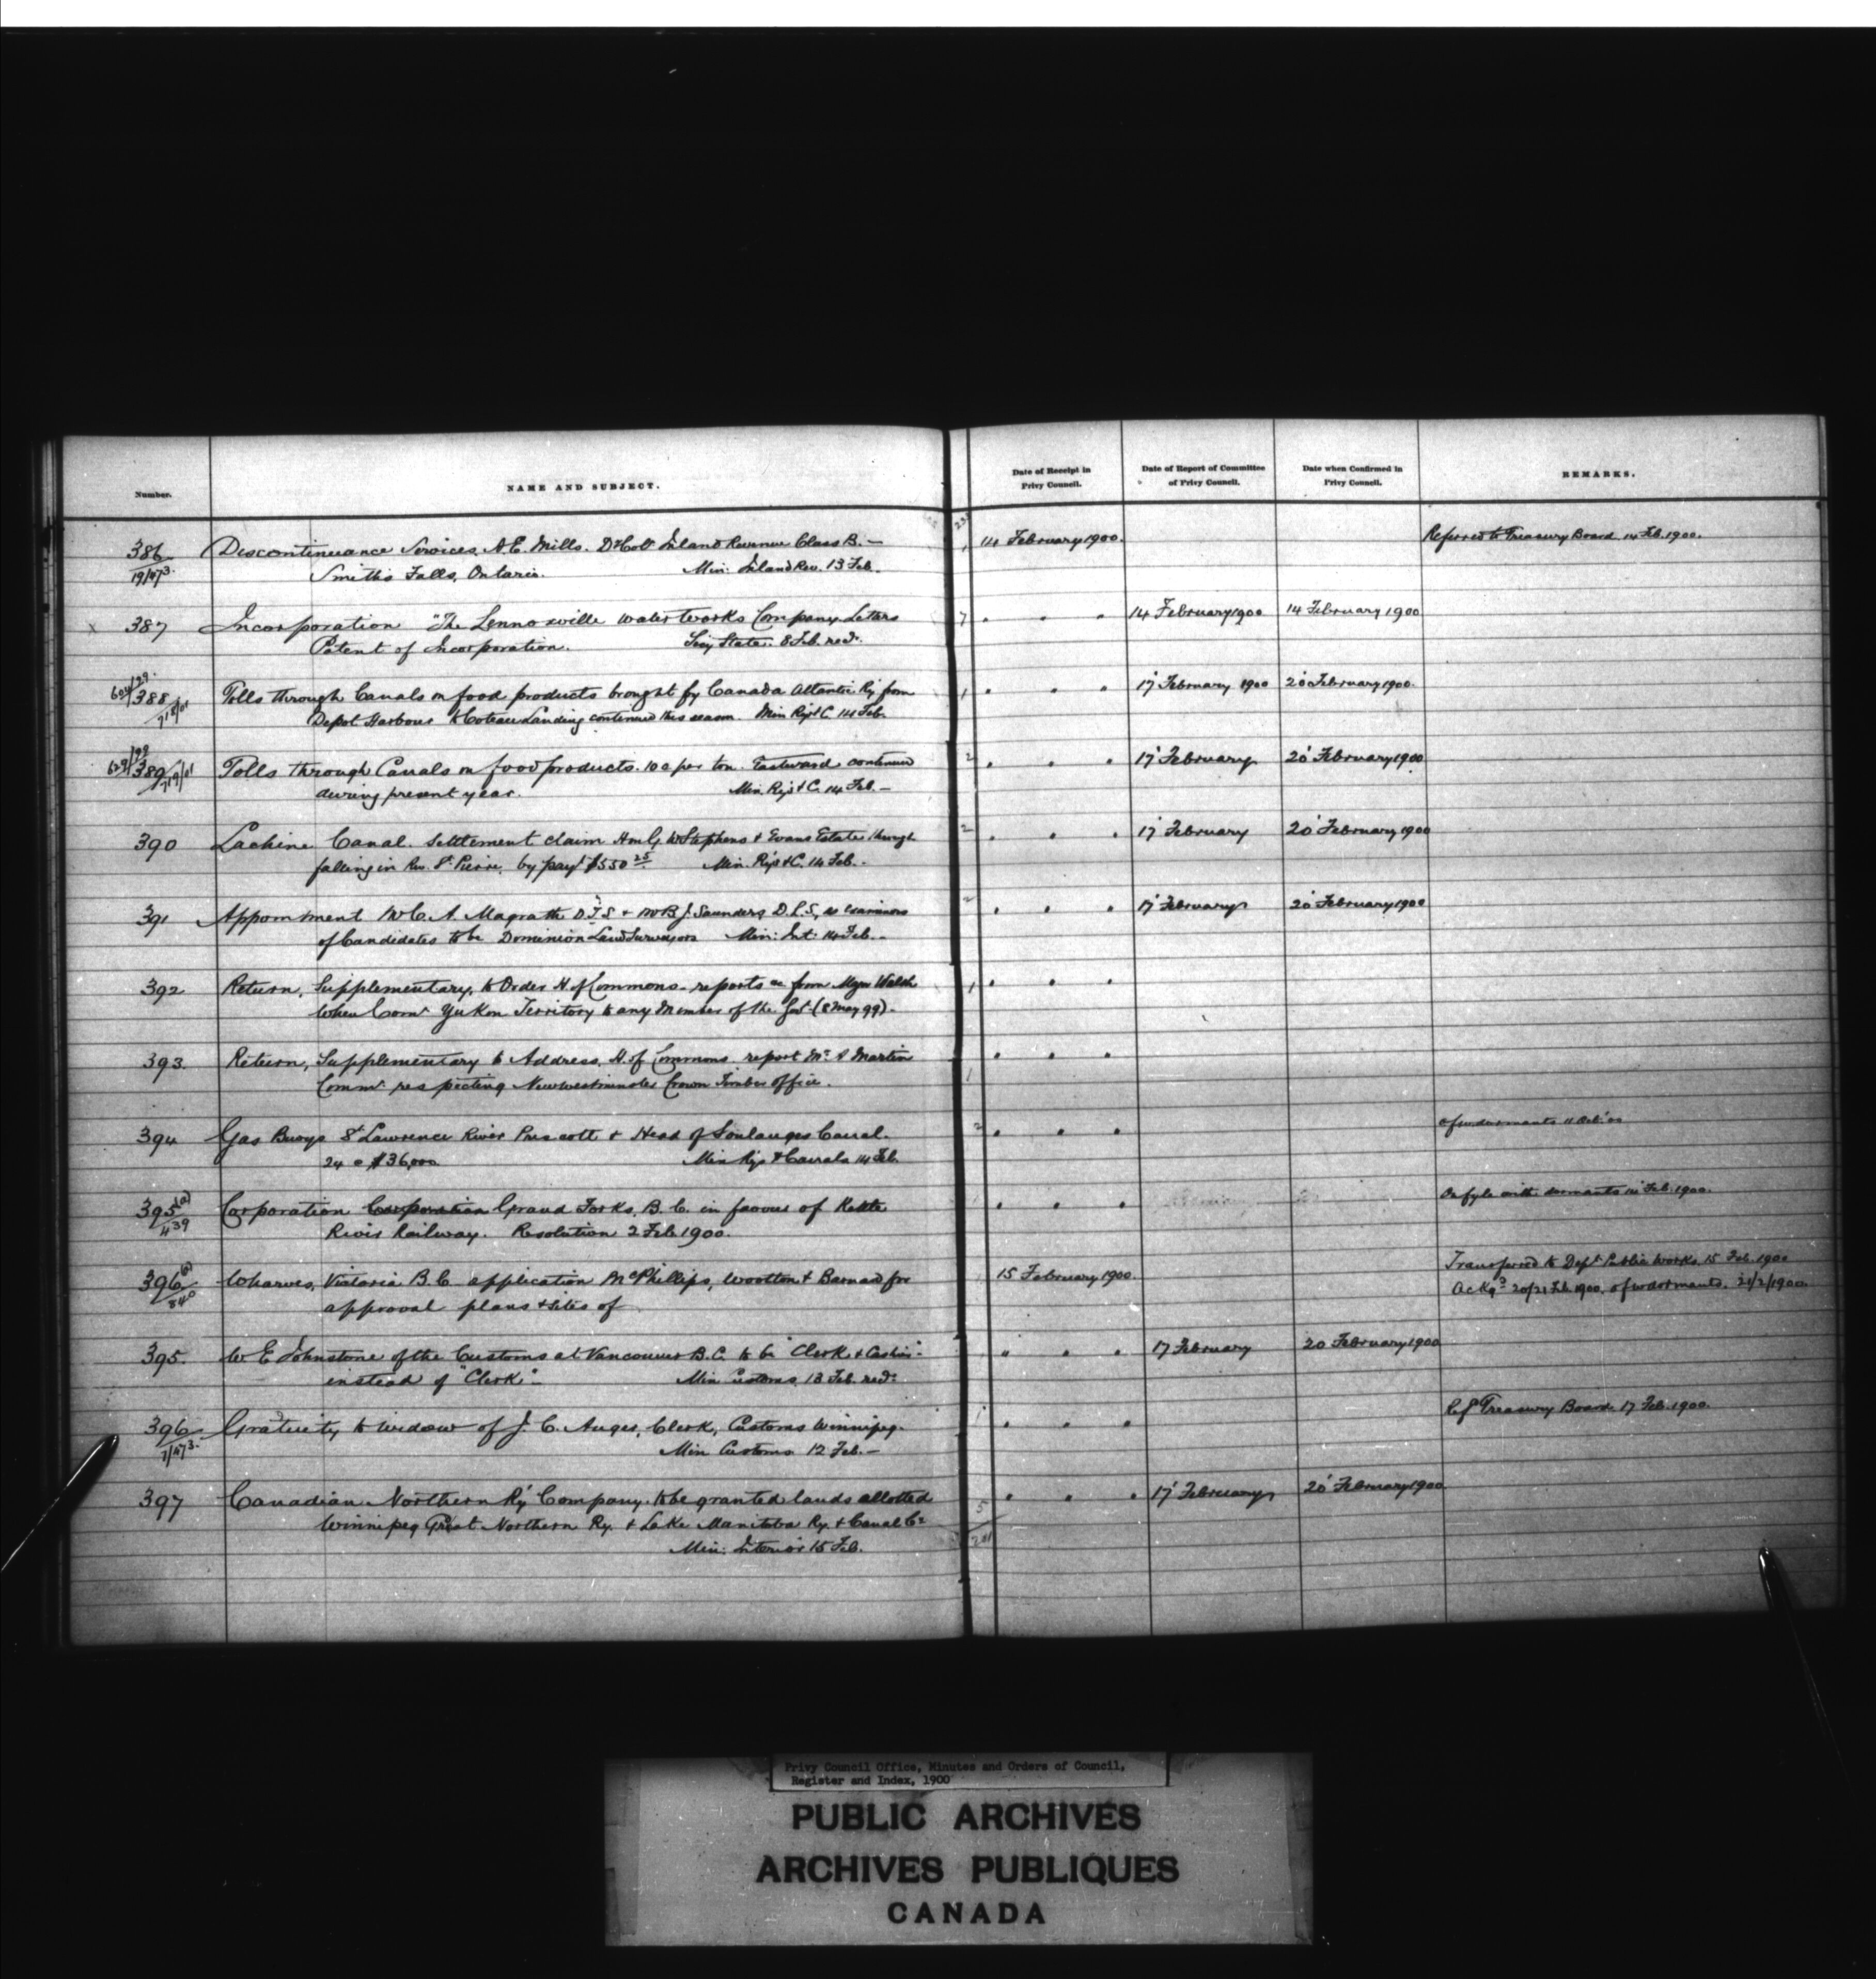 Number.
NAME AND SUBJECT.
Date of Receipt in
Privy Council.
Date of Report of Committee
of Privy Council.
Date when Confirmed in
Privy Council.
REMARKS.
386 Discontinuance Services A.E. Mills. Dy Colr Inland Revenue Class B. — 14 February 1900. Referred to Treasury Board 14 Feb. 1900.
19/473. Smith's Falls, Ontario. Min: Inland Rev. 13 Feb.
387 Incorporation "The Lennoxville Waterworks Company Letters 7 " " " 14 February 1900 14 February 1900
Patent of Incorporation. Secy State. 8 Feb. recd.
388 Tolls through Canals on food products brought by Canada Atlantic Ry from 1 " " " 17 February 1900 20 February 1900.
718/01 Depot Harbour to Coteau Landing continued this season. Min Rys & C. 14 Feb.
629/99 389 Tolls through Canals on food products. 10c per ton Eastward continued 2 " " " 17 February 20 February 1900
719/01 during present year. Min. Rys & C. 14 Feb. —
390 Lachine Canal. Settlement claim Hon G. W Stephens & Evans Estate through 2 " " " 17 February 20 February 1900
falling in Riv. St. Pierre, by payt $550 25 Min. Rys & C. 14 Feb. -
391 Appointment W C. A. Magrath D.T.S. & W B J. Saunders, D.L.S, as examiners 2 " " " 17 February 20 February 1900
of Candidates to be Dominion Land Surveyors Min: Int. 14 Feb. -
392 Return, Supplementary, to Order H. of Commons - reports &c from Major Walsh 1 " " "
when Comr Yukon Territory to any Member of the Govt (8 May 99).
393. Return, Supplementary to Address, H. of Commons report Mr A Martin " " "
Commr respecting New Westminster Crown Timber office. 1
394 Gas Buoys St Lawrence River Prescott & Head of Soulanges Canal. 2 " " "
24 = $36,000. Min Rys & Canals 14 Feb.
395 (a) Corporation Corporation Grand Forks, B. C. in favour of Kettle " " " On fyle with dormants 14 Feb. 1900.
439 River Railway. Resolution 2 Feb 1900.
396 (a) Wharves, Victoria B.C. application McPhillips, Wootton & Barnard for 15 February 1900. Transferred to Dept Public Works. 15 Feb. 1900
840 approval plans & sites of Ackgd 20/21 Feb. 1900. of w dormants. 21/2/1900.
395. W E Johnstone of the Customs at Vancouver B.C. to be "Clerk & Cashier" " " " 17 February 20 February 1900
instead of "Clerk" - Min Customs 13 Feb. recd.
396 Gratuity to widow of J. C. Auger, Clerk, Customs Winnipeg. 1 " " " Ref Treasury Board 17 Feb. 1900.
7/473. Min Customs 12 Feb. —
397 Canadian Northern Ry Company. to be granted lands allotted 5 " " " 17 February 20 February 1900
Winnipeg Great Northern Ry. & Lake Manitoba Ry. & Canal Co
Min: Interior 15 Feb.
Privy Council Office, Minutes and Orders of Council,
Register and Index, 1900
PUBLIC ARCHIVES
ARCHIVES PUBLIQUES
CANADA